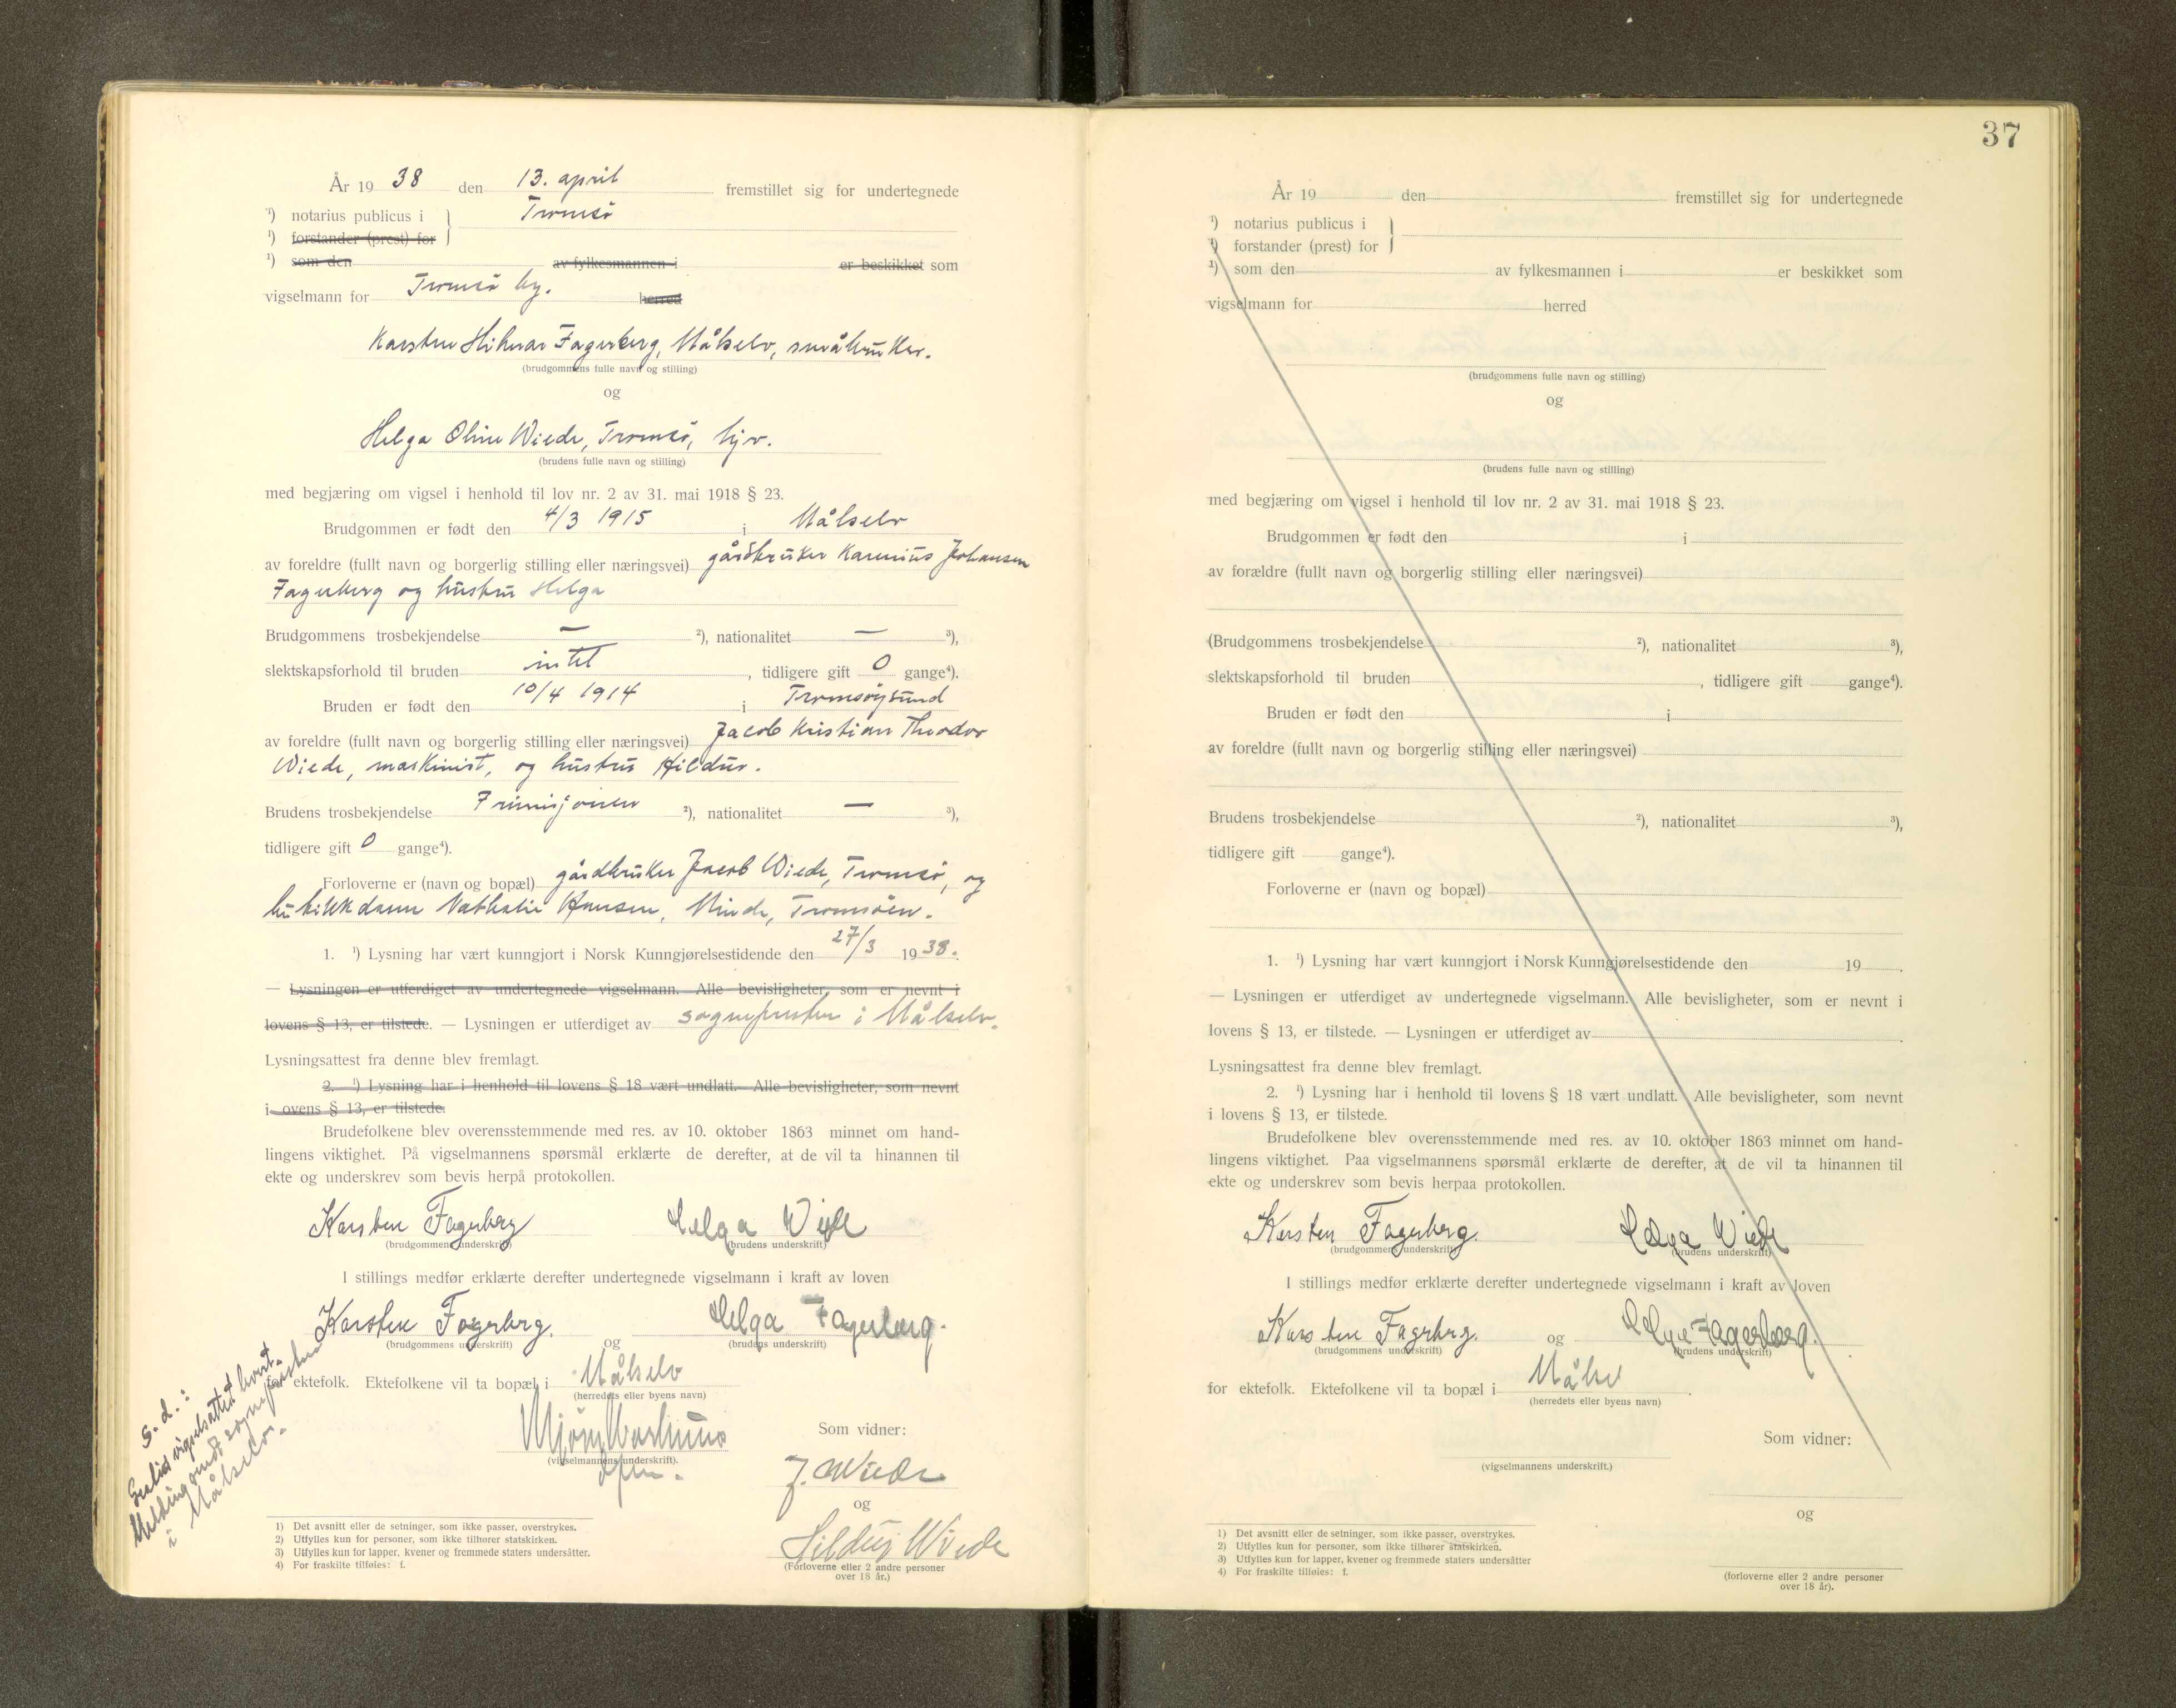 År 19 38 den 13. april fremstillet sig for undertegnede
¹) notarius publicus i Tromsö
¹) forstander (prest) for
¹) som den av fylkesmannen i er beskikket som
vigselmann for Tromsö by. herred
Karsten Hilmar Fagerberg, Målselv, småbruker.
(brudgommens fulle navn og stilling)
og
Helga Oline Wiede, Tromsö, hjv.
(brudens fulle navn og stilling)
med begjæring om vigsel i henhold til lov nr. 2 av 31. mai 1918 § 23.
Brudgommen er født den 4/3 1915 i Målselv
av foreldre (fullt navn og borgerlig stilling eller næringsvei) gårdbruker Karenius Johansen
Fagerberg og hustru Helga
Brudgommens trosbekjendelse — ²), nationalitet — ³),
slektskapsforhold til bruden intet , tidligere gift 0 gange⁴).
Bruden er født den 10/4 1914 i Tromsöysund
av foreldre (fullt navn og borgerlig stilling eller næringsvei) Jacob Kristian Theodor
Wiede, maskinist, og hustru Hildur.
Brudens trosbekjendelse Frimisjonen ²), nationalitet — ³),
tidligere gift 0 gange⁴).
Forloverne er (navn og bopæl) gårdbruker Jacob Wiede, Tromsö, og
butikkdame Nathalie Hansen, Minde, Tromsöen.
1. ¹) Lysning har vært kunngjort i Norsk Kunngjørelsestidende den 27/3 19 38.
— Lysningen er utferdiget av undertegnede vigselmann. Alle bevisligheter, som er nevnt i
lovens § 13, er tilstede. — Lysningen er utferdiget av sognepresten i Målselv.
Lysningsattest fra denne blev fremlagt.
2. ¹) Lysning har i henhold til lovens § 18 vært undlatt. Alle bevisligheter, som nevnt
i lovens § 13, er tilstede.
Brudefolkene blev overensstemmende med res. av 10. oktober 1863 minnet om hand-
lingens viktighet. På vigselmannens spørsmål erklærte de derefter, at de vil ta hinannen til
ekte og underskrev som bevis herpå protokollen.
Karsten Fagerberg Helga Wiede
(brudgommens underskrift) (brudens underskrift)
I stillings medfør erklærte derefter undertegnede vigselmann i kraft av loven
Karsten Fagerberg. og Helga Fagerberg.
(brudgommens underskrift) (brudens underskrift)
for ektefolk. Ektefolkene vil ta bopæl i Målselv
(herredets eller byens navn)
(vigselmannens underskrift).
Som vidner:
J. Wiede
og
Hildur Wiede
(Forloverne eller 2 andre personer
over 18 år.)
S. d.:
Geelid vigselsattest bort.
Melding sendt sognepresten
i Målselv.
1) Det avsnitt eller de setninger, som ikke passer, overstrykes.
2) Utfylles kun for personer, som ikke tilhører statskirken.
3) Utfylles kun for lapper, kvener og fremmede staters undersåtter.
4) For fraskilte tilføies: f.
37
År 19 den fremstillet sig for undertegnede
¹) notarius publicus i
¹) forstander (prest) for
¹) som den av fylkesmannen i er beskikket som
vigselmann for herred
(brudgommens fulle navn og stilling)
og
(brudens fulle navn og stilling)
med begjæring om vigsel i henhold til lov nr. 2 av 31. mai 1918 § 23.
Brudgommen er født den i
av forældre (fullt navn og borgerlig stilling eller næringsvei)
(Brudgommens trosbekjendelse ²), nationalitet ³),
slektskapsforhold til bruden , tidligere gift gange⁴).
Bruden er født den i
av foreldre (fullt navn og borgerlig stilling eller næringsvei)
Brudens trosbekjendelse ²), nationalitet ³),
tidligere gift gange⁴).
Forloverne er (navn og bopæl)
1. ¹) Lysning har vært kunngjort i Norsk Kunngjørelsestidende den 19 .
— Lysningen er utferdiget av undertegnede vigselmann. Alle bevisligheter, som er nevnt i
lovens § 13, er tilstede. — Lysningen er utferdiget av .
Lysningsattest fra denne blev fremlagt.
2. ¹) Lysning har i henhold til lovens § 18 vært undlatt. Alle bevisligheter, som nevnt
i lovens § 13, er tilstede.
Brudefolkene blev overensstemmende med res. av 10. oktober 1863 minnet om hand-
lingens viktighet. Paa vigselmannens spørsmål erklærte de derefter, at de vil ta hinannen til
ekte og underskrev som bevis herpaa protokollen.
Karsten Fagerberg. Helga Wiede
(brudgommens underskrift) (brudens underskrift)
I stillings medfør erklærte derefter undertegnede vigselmann i kraft av loven
Karsten Fagerberg. og Helga Fagerberg.
(brudgommens underskrift) (brudens underskrift)
for ektefolk. Ektefolkene vil ta bopæl i Målse .
(herredets eller byens navn)
(vigselmannens underskrift.)
Som vidner:
og
(forloverne eller 2 andre personer
over 18 år).
1) Det avsnitt eller de setninger, som ikke passer, overstrykes.
2) Utfylles kun for personer, som ikke tilhører statskirken.
3) Utfylles kun for lapper, kvener og fremmede staters undersåtter
4) For fraskilte tilføies: f.